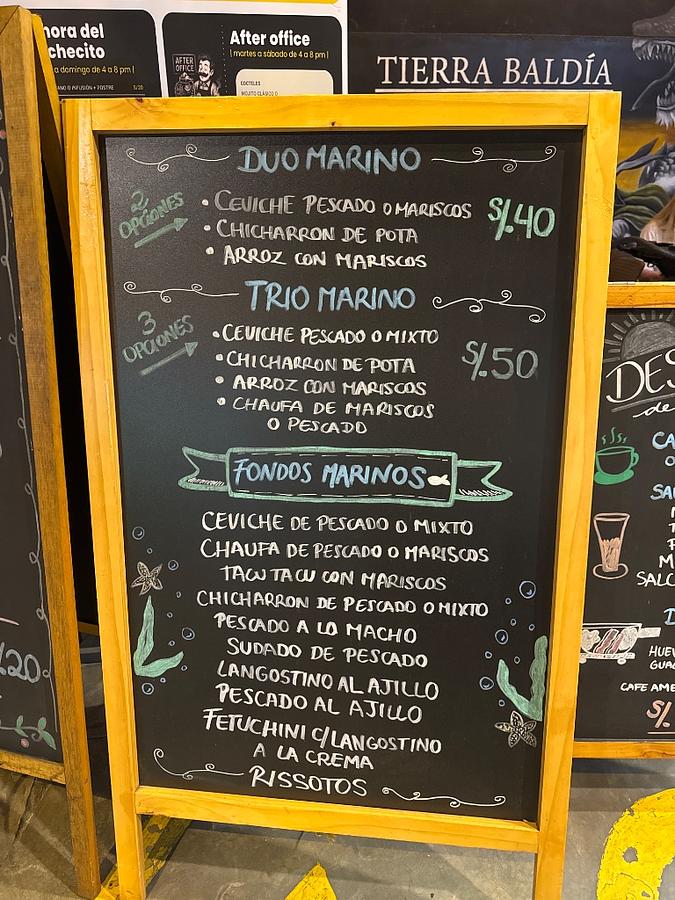 After office
| martes a sábado de 4 a 8 pm |
AFTER
OFFICE
COCTELES
TIERRA BALDÍA
DUO MARINO
2
OPCIONES
• CEVICHE PESCADO O MARISCOS
S/.40
• CHICHARRON DE POTA
• ARROZ CON MARISCOS
TRIO MARINO
3
OPCIONES
• CEVICHE PESCADO O MIXTO
• CHICHARRON DE POTA
S/.50
• ARROZ CON MARISCOS
• CHAUFA DE MARISCOS
O PESCADO
FONDOS MARINOS
CEVICHE DE PESCADO O MIXTO
CHAUFA DE PESCADO O MARISCOS
TACU TACU CON MARISCOS
CHICHARRON DE PESCADO O MIXTO
PESCADO A LO MACHO
SUDADO DE PESCADO
LANGOSTINO AL AJILLO
PESCADO AL AJILLO
FETUCHINI C/LANGOSTINO
A LA CREMA
RISSOTOS
DES
de
CAFE AME
S/.